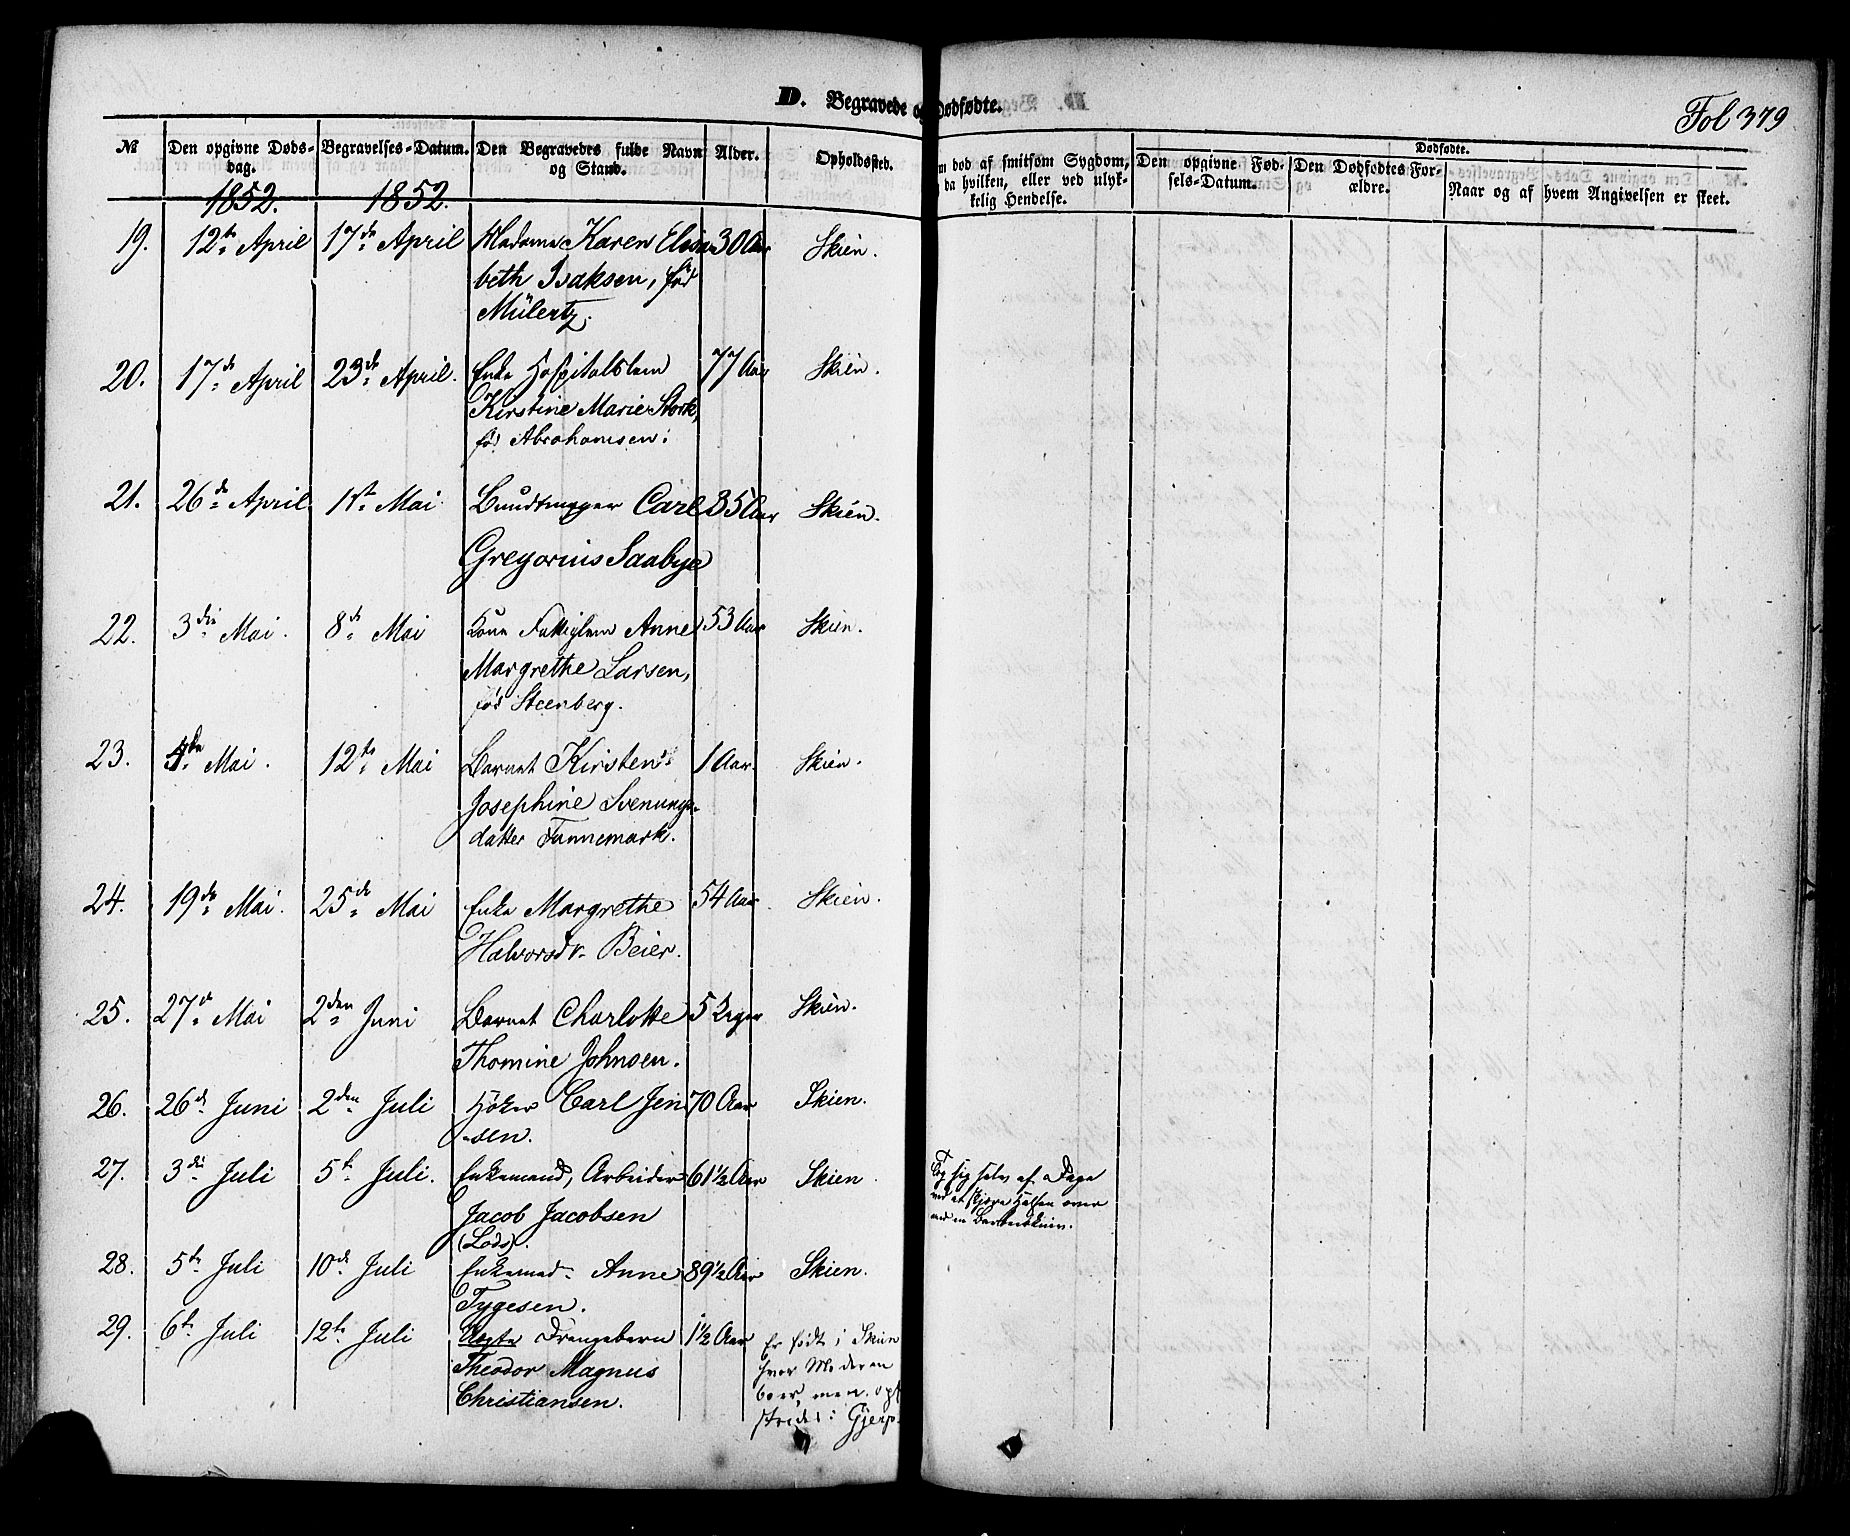 D. Begravede og Dødfødte.
Fol 379
№
Den opgivne Døds-
dag.
Begravelses-Datum.
Den Begravedes fulde Navn
og Stand.
Alder.
Opholdssted.
m død af smitsom Sygdom,
da hvilken, eller ved ulyk-
kelig Hendelse.
Dødfødte.
Den opgivne Fød-
sels-Datum.
Den Dødfødtes For-
ældre.
Naar og af hvem Angivelsen er skeet.
1852. 1852.
19. 12te April 17de April Madame Karen Elisa- 30 Aar Skien.
beth Isaksen, fød
Mülertz.
20. 17de April 23de April. Enke Hospitalslem 77 Aar Skien.
Kirstine Marie Stork,
fød Abrahamsen.
21. 26de April 1ste Mai Bundtmager Carl 35 Aar Skien.
Gregorius Saabye
22. 3die Mai. 8de Mai Kone Fattiglem Anne 53 Aar Skien.
Margrethe Larsen,
fød Steenberg.
23. Mai. 12te Mai Barnet Kirsten 1 Aar. Skien.
Josephine Svenungs-
datter Tannemark.
24. 19de Mai. 25de Mai Enke Margrethe 54 Aar Skien.
Halvorsdr. Beier.
25. 27de Mai 2den Juni Barnet Charlotte 5 Dage Skien.
Thomine Johnsen.
26. 26de Juni 2den Juli Høker Carl Jen 70 Aar Skien.
-sen.
27. 3die Juli 5te Juli. Enkemand, Arbeider 61½ Aar Skien Tog sig selv af Dage
ved at skjære Halsen over
med en Barberkniv.
Jacob Jacobsen
(Lods).
28. 5te Juli 10de Juli Enkemad. Anne 89½ Aar Skien.
Tygesen.
29. 6te Juli 12te Juli Uægte Drengebarn 1½ Aar Er født i Skien
Theodor Magnus hvor Moderen
boer, men op-
Christiansen.
i Gjerp.